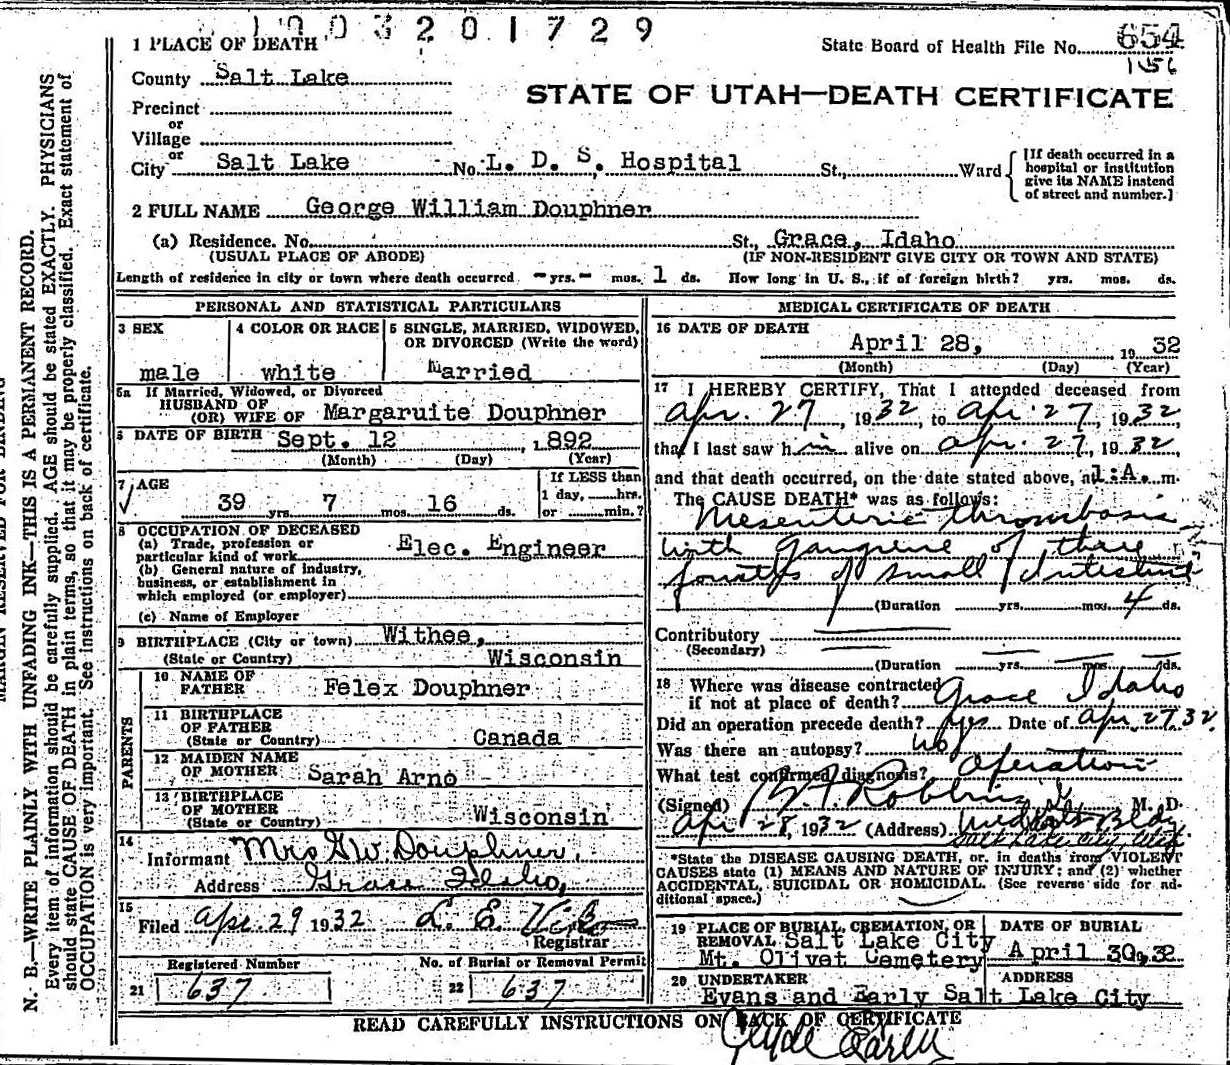 1003201729
1 PLACE OF DEATH
State Board of Health File No. 654
1156
County Salt Lake
STATE OF UTAH—DEATH CERTIFICATE
Precinct
or
Village
or
City Salt Lake No. L. D. S. Hospital St., Ward
[If death occurred in a
hospital or institution
give its NAME instend
of street and number.]
2 FULL NAME George William Douphner
(a) Residence. No. St., Grace, Idaho
(USUAL PLACE OF ABODE) (IF NON-RESIDENT GIVE CITY OR TOWN AND STATE)
Length of residence in city or town where death occurred - yrs. - mos. 1 ds. How long in U. S., if of foreign birth? yrs. mos. ds.
PERSONAL AND STATISTICAL PARTICULARS
3 SEX
male
4 COLOR OR RACE
white
5 SINGLE, MARRIED, WIDOWED,
OR DIVORCED (Write the word)
Married
5a If Married, Widowed, or Divorced
HUSBAND OF
(OR) WIFE OF Margaruite Douphner
6 DATE OF BIRTH Sept. 12 , 1892
(Month) (Day) (Year)
7 AGE
39 yrs. 7 mos. 16 ds.
If LESS than
1 day, hrs.
or min.?
8 OCCUPATION OF DECEASED
(a) Trade, profession or
particular kind of work Elec. Engineer
(b) General nature of industry,
business, or establishment in
which employed (or employer)
(c) Name of Employer
9 BIRTHPLACE (City or town) Withee,
(State or Country) Wisconsin
PARENTS
10 NAME OF
FATHER Felex Douphner
11 BIRTHPLACE
OF FATHER
(State or Country) Canada
12 MAIDEN NAME
OF MOTHER Sarah Arno
13 BIRTHPLACE
OF MOTHER
(State or Country) Wisconsin
14
Informant Mrs G W Douphner,
Address Grace Idaho,
15
Filed Apr. 29 1932 L. E.
Registrar
Registered Number
21 637
No. of Burial or Removal Permit
22 637
MEDICAL CERTIFICATE OF DEATH
16 DATE OF DEATH
April 28, 1932
(Month) (Day) (Year)
17 I HEREBY CERTIFY, That I attended deceased from
Apr. 27, 1932, to Apr. 27, 1932,
that I last saw him alive on Apr. 27, 1932,
and that death occurred, on the date stated above, at 1:A. m.
The CAUSE DEATH* was as follows:
Mesenteric thrombosis
with gangrene of three
fourths of small intestine
(Duration yrs. mos. 4 ds.
Contributory
(Secondary)
(Duration yrs. mos. ds.
18 Where was disease contracted
if not at place of death? Grace Idaho
Did an operation precede death? yes Date of Apr. 27, 32
Was there an autopsy? No
What test confirmed diagnosis? Operation
(Signed) B. F. Robbins M. D.
Apr 28, 1932 (Address) Med Arts Bldg.
Salt Lake City, Utah
*State the DISEASE CAUSING DEATH, or, in deaths from VIOLENT
CAUSES state (1) MEANS AND NATURE OF INJURY; and (2) whether
ACCIDENTAL, SUICIDAL OR HOMICIDAL. (See reverse side for ad-
ditional space.)
19 PLACE OF BURIAL, CREMATION, OR
REMOVAL Salt Lake City
Mt. Olivet Cemetery
DATE OF BURIAL
April 30, 32
20 UNDERTAKER ADDRESS
Evans and Early Salt Lake City
READ CAREFULLY INSTRUCTIONS ON BACK OF CERTIFICATE
Clyde Early
MARGIN RESERVED FOR BINDING
N. B.—WRITE PLAINLY WITH UNFADING INK—THIS IS A PERMANENT RECORD.
Every item of information should be carefully supplied. AGE should be stated EXACTLY. PHYSICIANS
should state CAUSE OF DEATH in plain terms, so that it may be properly classified. Exact statement of
OCCUPATION is very important. See instructions on back of certificate.